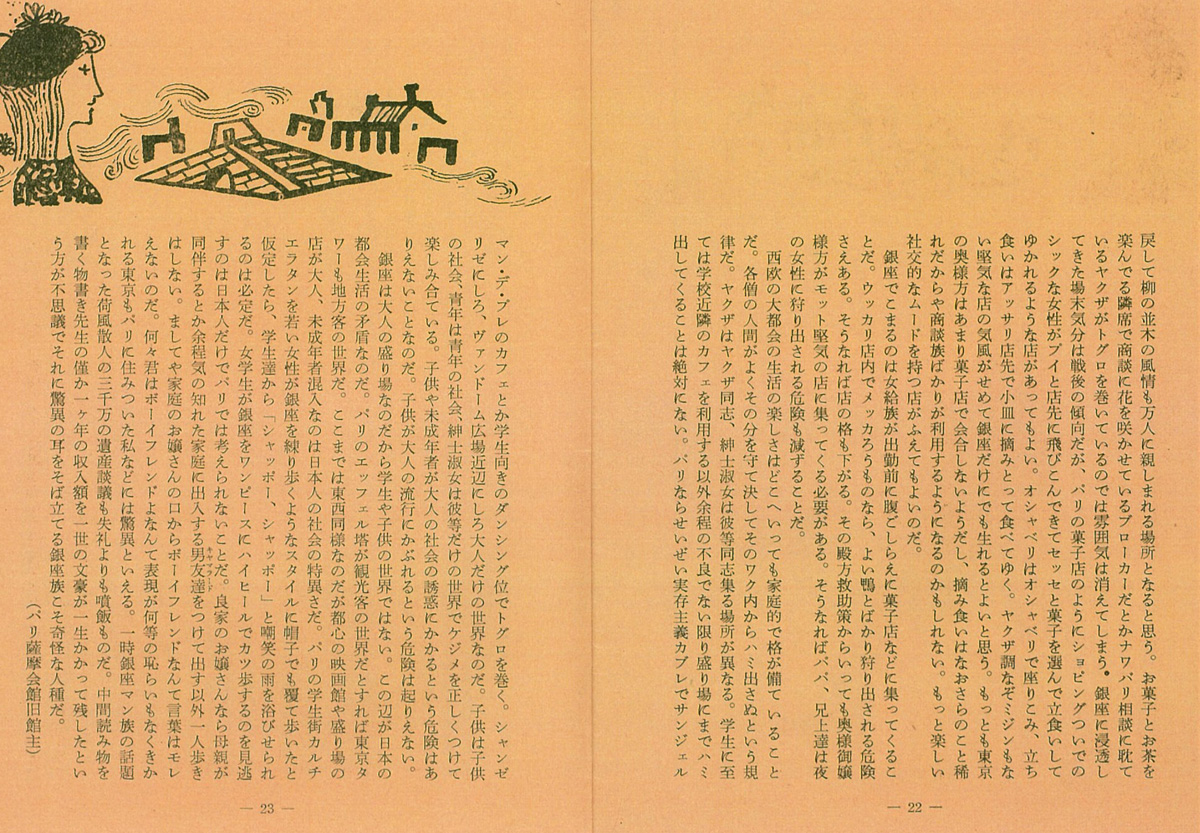 戻して柳の並木の風情も万人に親しまれる場所となると思う。お菓子とお茶を
楽んでる隣席で商談に花を咲かせているブローカーだとかナワバリ相談に耽て
いるヤクザがトグロを巻いているのでは雰囲気は消えてしまう。銀座に浸透し
てきた場末気分は戦後の傾向だが、パリの菓子店のようにショピングついでの
シックな女性がプイと店先に飛びこんできてセッセと菓子を選んで立食いして
ゆかれるような店があってもよい。オシャベリはオシャベリで座りこみ、立ち
食いはアッサリ店先で小皿に摘みとって食べてゆく。ヤクザ調なぞミジンもな
い堅気な店の気風がせめて銀座だけにでも生れるとよいと思う。もっとも東京
の奥様方はあまり菓子店で会合しないようだし、摘み食いはなおさらのこと稀
れだからや商談族ばかりが利用するようになるのかもしれない。もっと楽しい
社交的なムードを持つ店がふえてもよいのだ。
銀座でこまるのは女給族が出勤前に腹ごしらえに菓子店などに集ってくるこ
とだ。ウッカリ店内でメッカろうものなら、よい鴨とばかり狩り出される危険
さえある。そうなれば店の格も下がる。その殿方救助策からいっても奥様御嬢
様方がモット堅気の店に集ってくる必要がある。そうなればパパ、兄上達は夜
の女性に狩り出される危険も減ずることだ。
西欧の大都会の生活の楽しさはどこへいっても家庭的で格が備ていること
だ。各僧の人間がよくその分を守て決してそのワク内からハミ出さぬという規
律だ。ヤクザはヤクザ同志、紳士淑女は彼等同志集る場所が異なる。学生に至
ては学校近隣のカフェを利用する以外余程の不良でない限り盛り場にまでハミ
出してくることは絶対にない。パリならせいぜい実存主義カブレでサンジェル
— 22 —
マン・デ・プレのカフェとか学生向きのダンシング位でトグロを巻く。シャンゼ
リゼにしろ、ヴァンドーム広場近辺にしろ大人だけの世界なのだ。子供は子供
の社会、青年は青年の社会、紳士淑女は彼等だけの世界でケジメを正しくつけて
楽しみ合ている。子供や未成年者が大人の社会の誘惑にかかるという危険はあ
りえないことなのだ。子供が大人の流行にかぶれるという危険は起りえない。
銀座は大人の盛り場なのだから学生や子供の世界ではない。この辺が日本の
都会生活の矛盾なのだ。パリのエッフェル塔が観光客の世界だとすれば東京タ
ワーも地方客の世界だ。ここまでは東西同様なのだが都心の映画館や盛り場の
店が大人、未成年者混入なのは日本人の社会の特異さだ。パリの学生街カルチ
エラタンを若い女性が銀座を練り歩くようなスタイルに帽子でも覆て歩いたと
仮定したら、学生達から「シャッポー、シャッポー」と嘲笑の雨を浴びせられ
るのは必定だ。女学生が銀座をワンピースにハイヒールでカツ歩するのを見逃
すのは日本人だけでパリでは考えられないことだ。良家のお嬢さんなら母親が
同伴するとか余程気の知れた家庭に出入する男友達をつけて出す以外一人歩き
はしない。ましてや家庭のお嬢さんの口からボーイフレンドなんて言葉はモレ
えないのだ。何々君はボーイフレンドよなんて表現が何等の恥らいもなくきか
れる東京もパリに住みついた私などには驚異といえる。一時銀座マン族の話題
となった荷風散人の三千万の遺産談議も失礼よりも噴飯ものだ。中間読み物を
書く物書き先生の僅か一ヶ年の収入額を一世の文豪が一生かかって残したとい
う方が不思議でそれに驚異の耳をそば立てる銀座族こそ奇怪な人種だ。
（パリ薩摩会館旧館主）
— 23 —